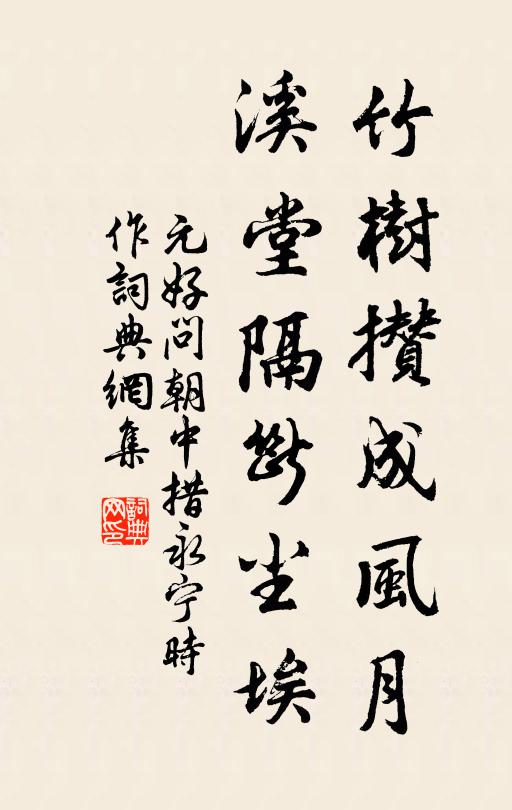 竹樹攢成風月
溪堂隔斷尘埃
元好问朝中措永宁時
作詞典網集
詞典
网印